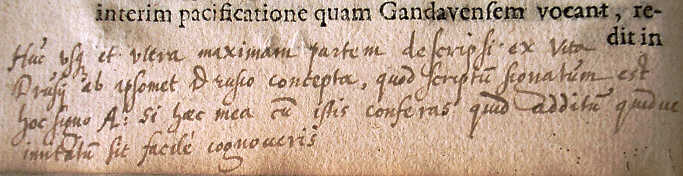 interim pacificatione quam Gandavenſem vocant, re-
dit in
Huc usq et ultra maximam partem descripsi ex Vita
Drusij ab ipsomet Drusio concepta, quod scriptū signatum est
hoc signo A. si hæc mea cū istis conferas quid additū quidue
immutatū sit facilè cognoueris